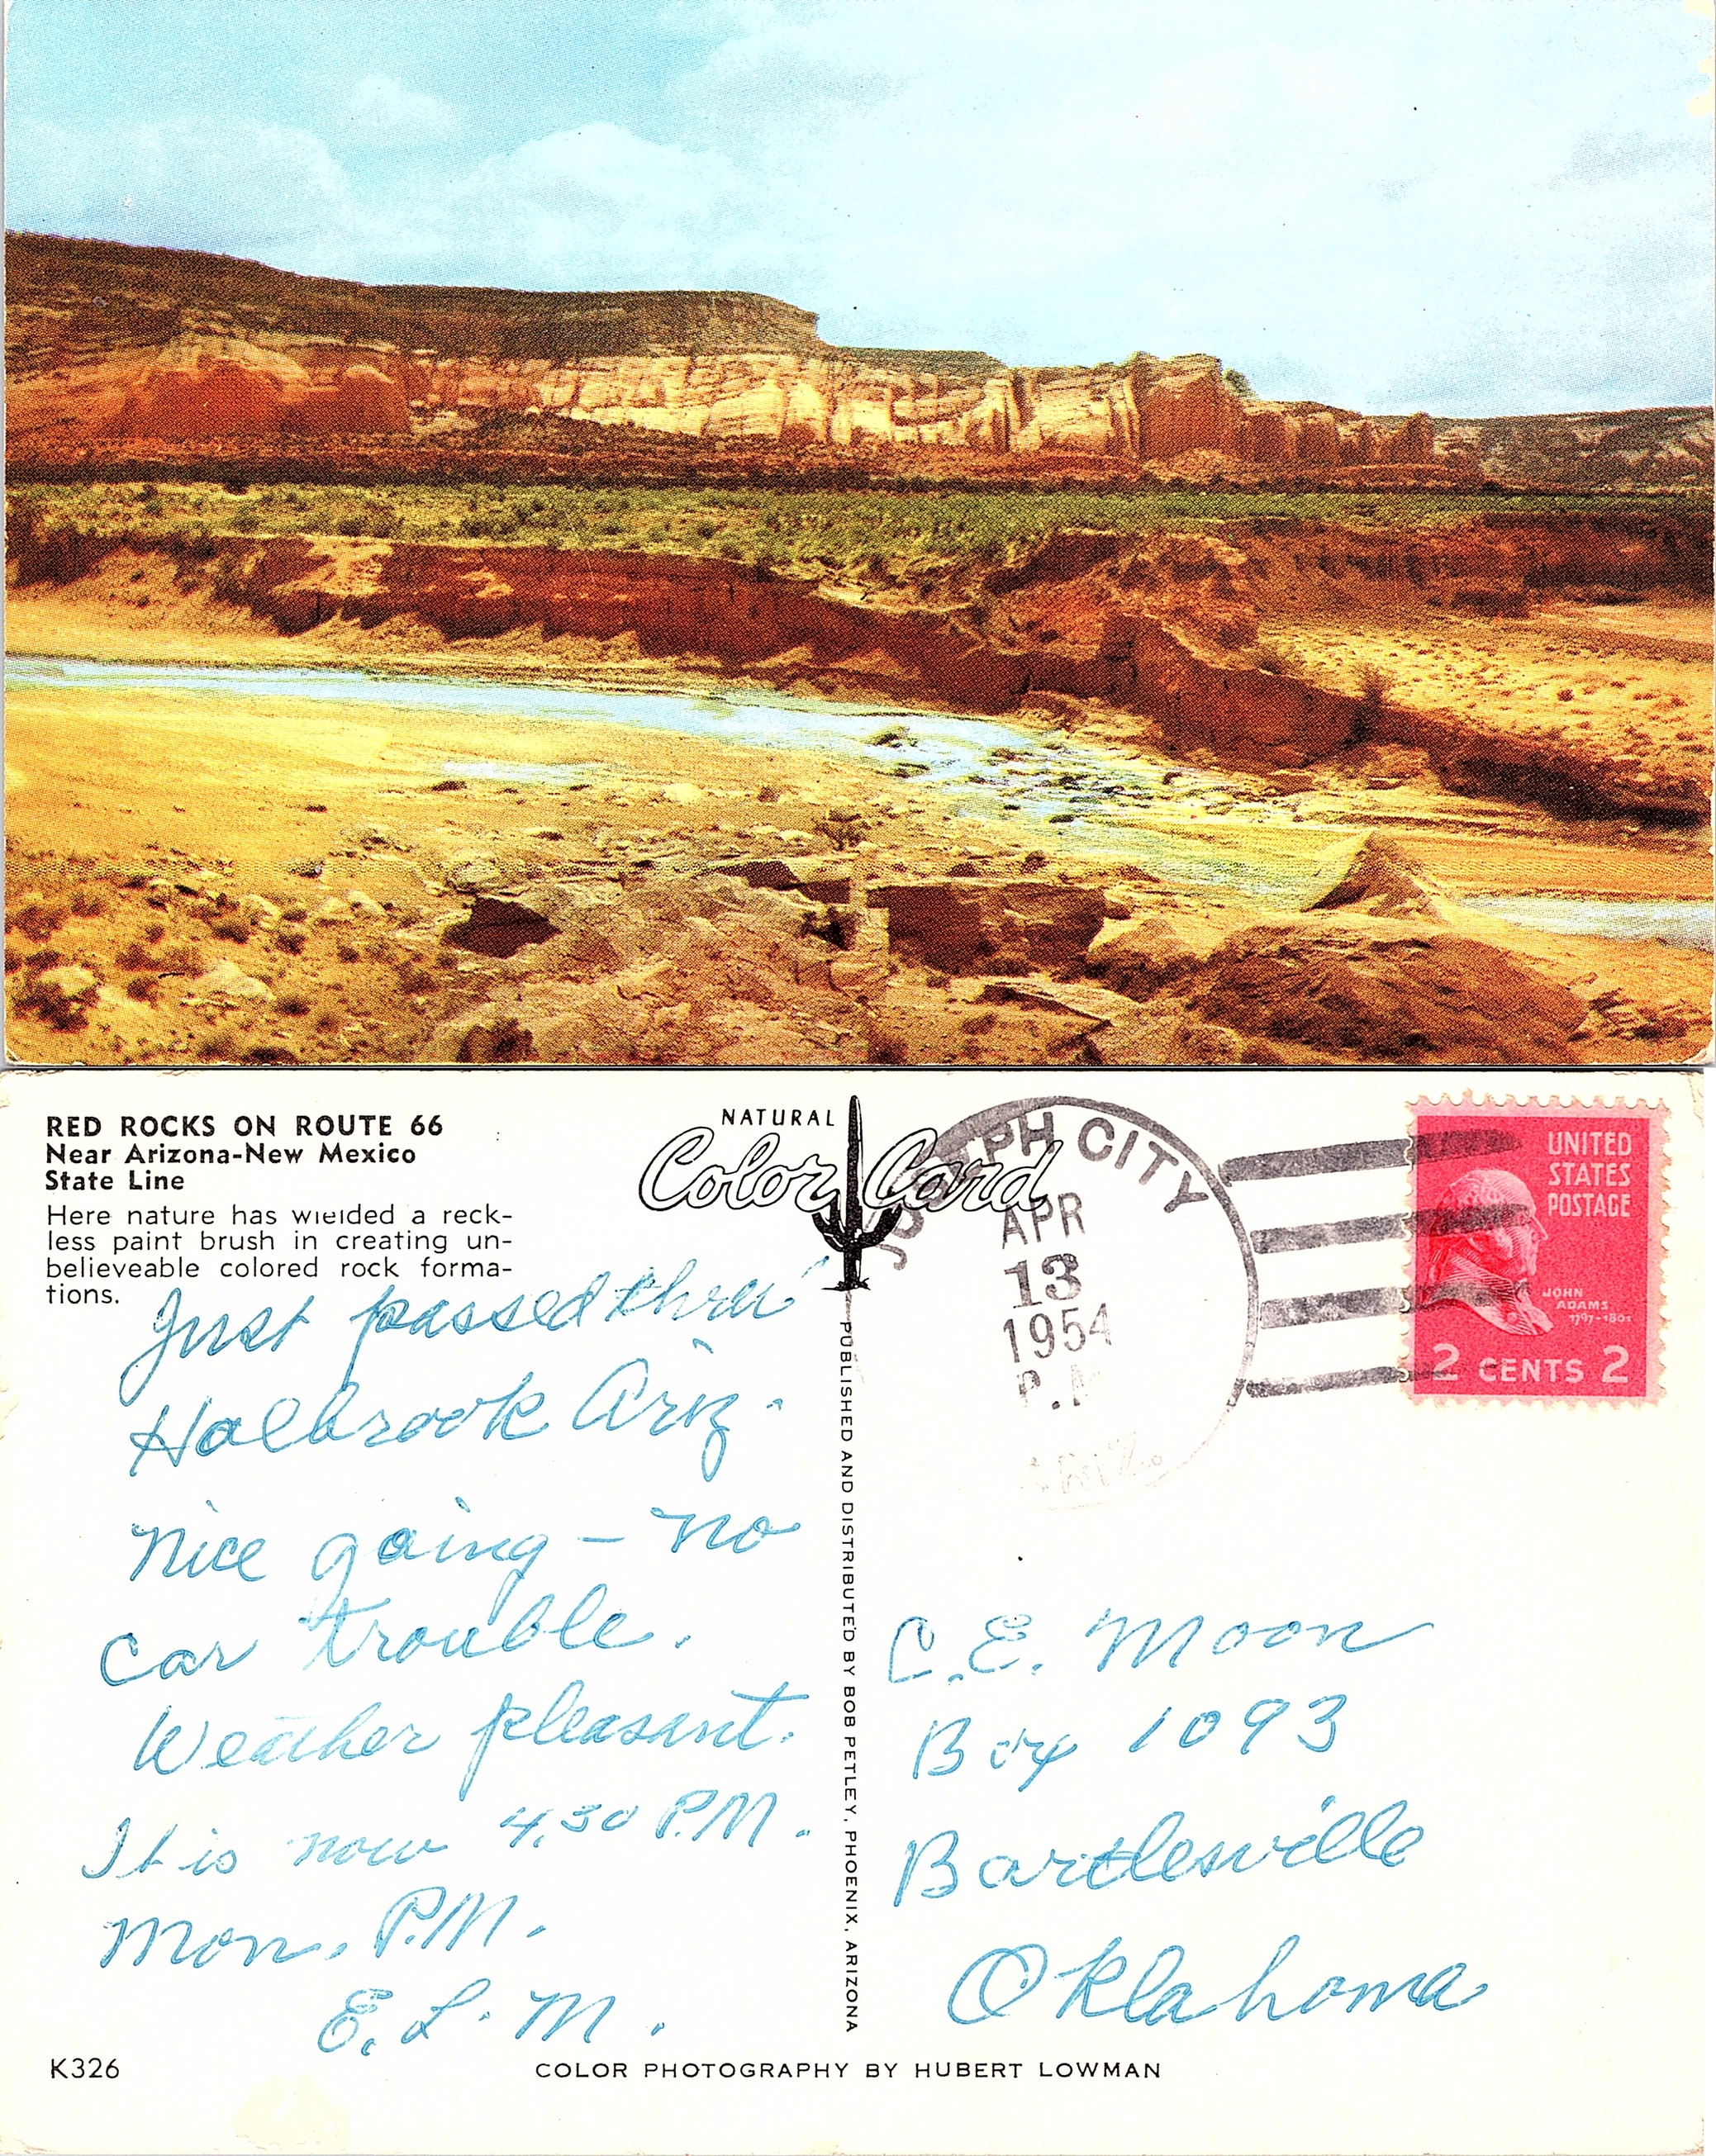 RED ROCKS ON ROUTE 66
Near Arizona-New Mexico
State Line
Here nature has wielded a reck-
less paint brush in creating un-
believeable colored rock forma-
tions.
NATURAL
Color Card
JOSEPH CITY
APR
13
1954
P.M
ARIZ.
UNITED
STATES
POSTAGE
JOHN
ADAMS
1797-1801
2 CENTS 2
Just passed thru
Holbrook Ariz.
Nice going - no
car trouble.
Weather pleasant.
It is now 4.30 P.M.
Mon. P.M.
E. L. M.
PUBLISHED AND DISTRIBUTED BY BOB PETLEY, PHOENIX, ARIZONA
C.E. Moon
Box 1093
Bartlesville
Oklahoma
K326
COLOR PHOTOGRAPHY BY HUBERT LOWMAN